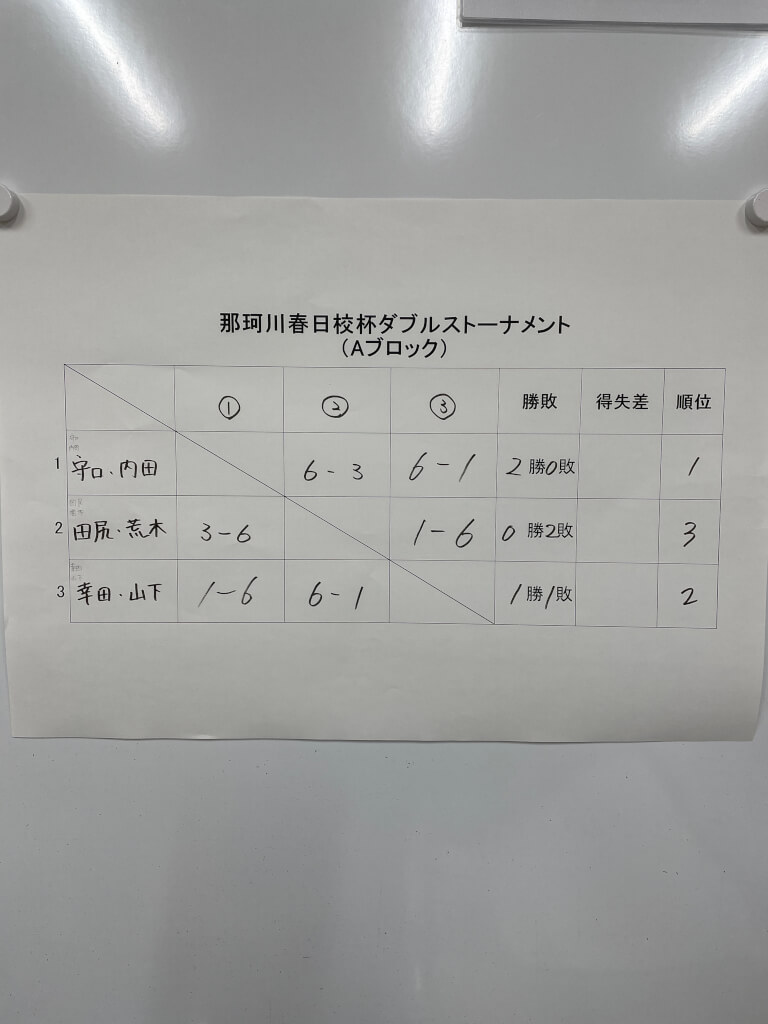 那珂川春日校杯ダブルストーナメント
(Aブロック)
① ② ③ 勝敗 得失差 順位
1 守口・内田 6-3 6-1 2勝0敗 1
2 田尻・荒木 3-6 1-6 0勝2敗 3
3 幸田・山下 1-6 6-1 1勝1敗 2